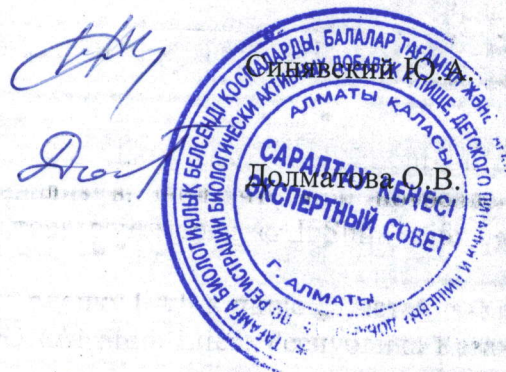 Синявский Ю.А.
Долматова О.В.
ТАҒАМҒА БИОЛОГИЯЛЫҚ БЕЛСЕНДІ ҚОСПАЛАРДЫ, БАЛАЛАР ТАҒАМЫН ЖӘНЕ
ПО РЕГИСТРАЦИИ БИОЛОГИЧЕСКИ АКТИВНЫХ ДОБАВОК К ПИЩЕ, ДЕТСКОГО ПИТАНИЯ И ПИЩЕВЫХ
АЛМАТЫ ҚАЛАСЫ
САРАПТАУ КЕҢЕСІ
ЭКСПЕРТНЫЙ СОВЕТ
Г. АЛМАТЫ